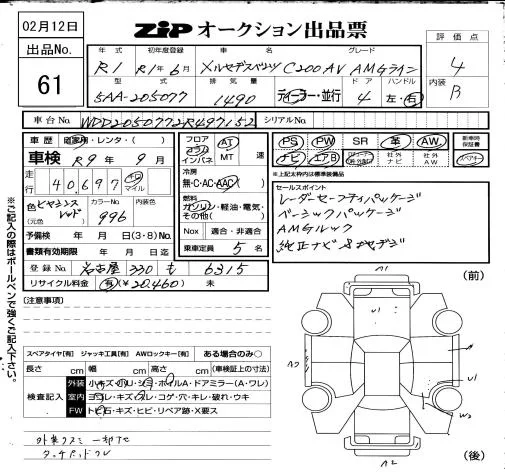 02月12日
ZIP オークション出品票
出品No.
61
評価点
4
内装
B
年式 初年度登録 車名 グレード
R1 R1年6月 メルセデスベンツ C200AV AMGライン
型式 排気量 ドア ハンドル
5AA-205077 1490 ディーラー・並行 4 左・右
車台No. WDD2050772R497152 シリアルNo.
車歴 自家用・レンタ・( )
車検 R9年9月
走行 40,697 キロ マイル
フロア コラム インパネ
AT
MT 速
冷房
無・C・AC・AAC
燃料
ガソリン・軽油・電気・
その他( )
Nox 適合・非適合
乗車定員 5名
PS PW SR 革 AW
ナビ エアB 社外ナビ 社外AW
新車時保証書
スペアキー
※上記太枠内は標準装備品
色 ヒヤシンスレッド
(元色)
カラーNo. 996
内装色
予備検 年 月 日(3・8)No.
書類有効期限 年 月 日
登録No. 名古屋 330 も 6315
リサイクル料金 有(¥20,460) 未
セールスポイント
レーダーセーフティパッケージ
ベーシックパッケージ
AMGルック
(注意事項)
スペアタイヤ[有] ジャッキ工具[有] AWロックキー[有] ある場合のみ○
長さ cm 幅 cm 高さ cm (車検証上の寸法)
検査記入
外装 小キズ・のリ・シミ・ホイルA・ドアミラー(A・ワレ)
室内 ヨゴレ・キズ・スレ・コゲ・穴・キレ・破れ・ウキ
FW トビ石・キズ・ヒビ・リペア跡・X要ス
外装クスミ 一部化
タッチアップ
※ご記入の際はボールペンで強くご記入下さい。
(前)
A1
U1
U1
A2
(後)